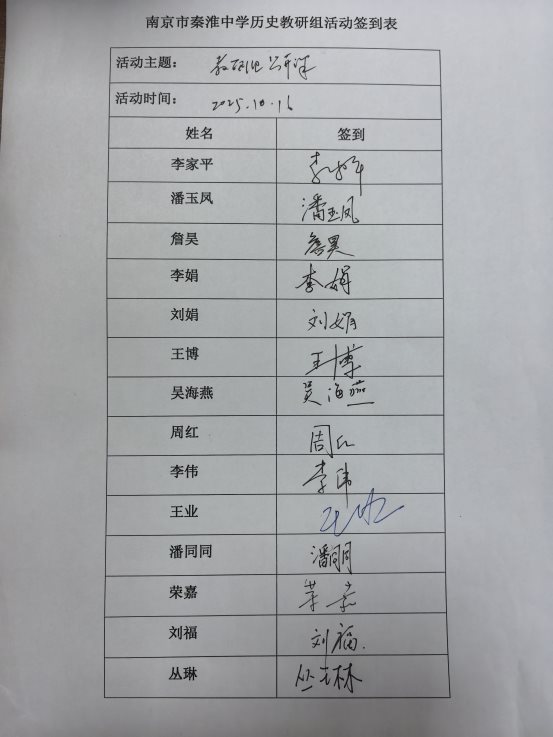 南京市秦淮中学历史教研组活动签到表
活动主题： 教研组公开课
活动时间： 2025.10.16
姓名 签到
李家平 李家平
潘玉凤 潘玉凤
詹昊 詹昊
李娟 李娟
刘娟 刘娟
王博 王博
吴海燕 吴海燕
周红 周红
李伟 李伟
王业 王业
潘同同 潘同同
荣嘉 荣嘉
刘福 刘福.
丛琳 丛琳